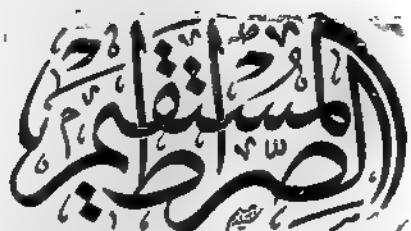 الصراط
المستقيم